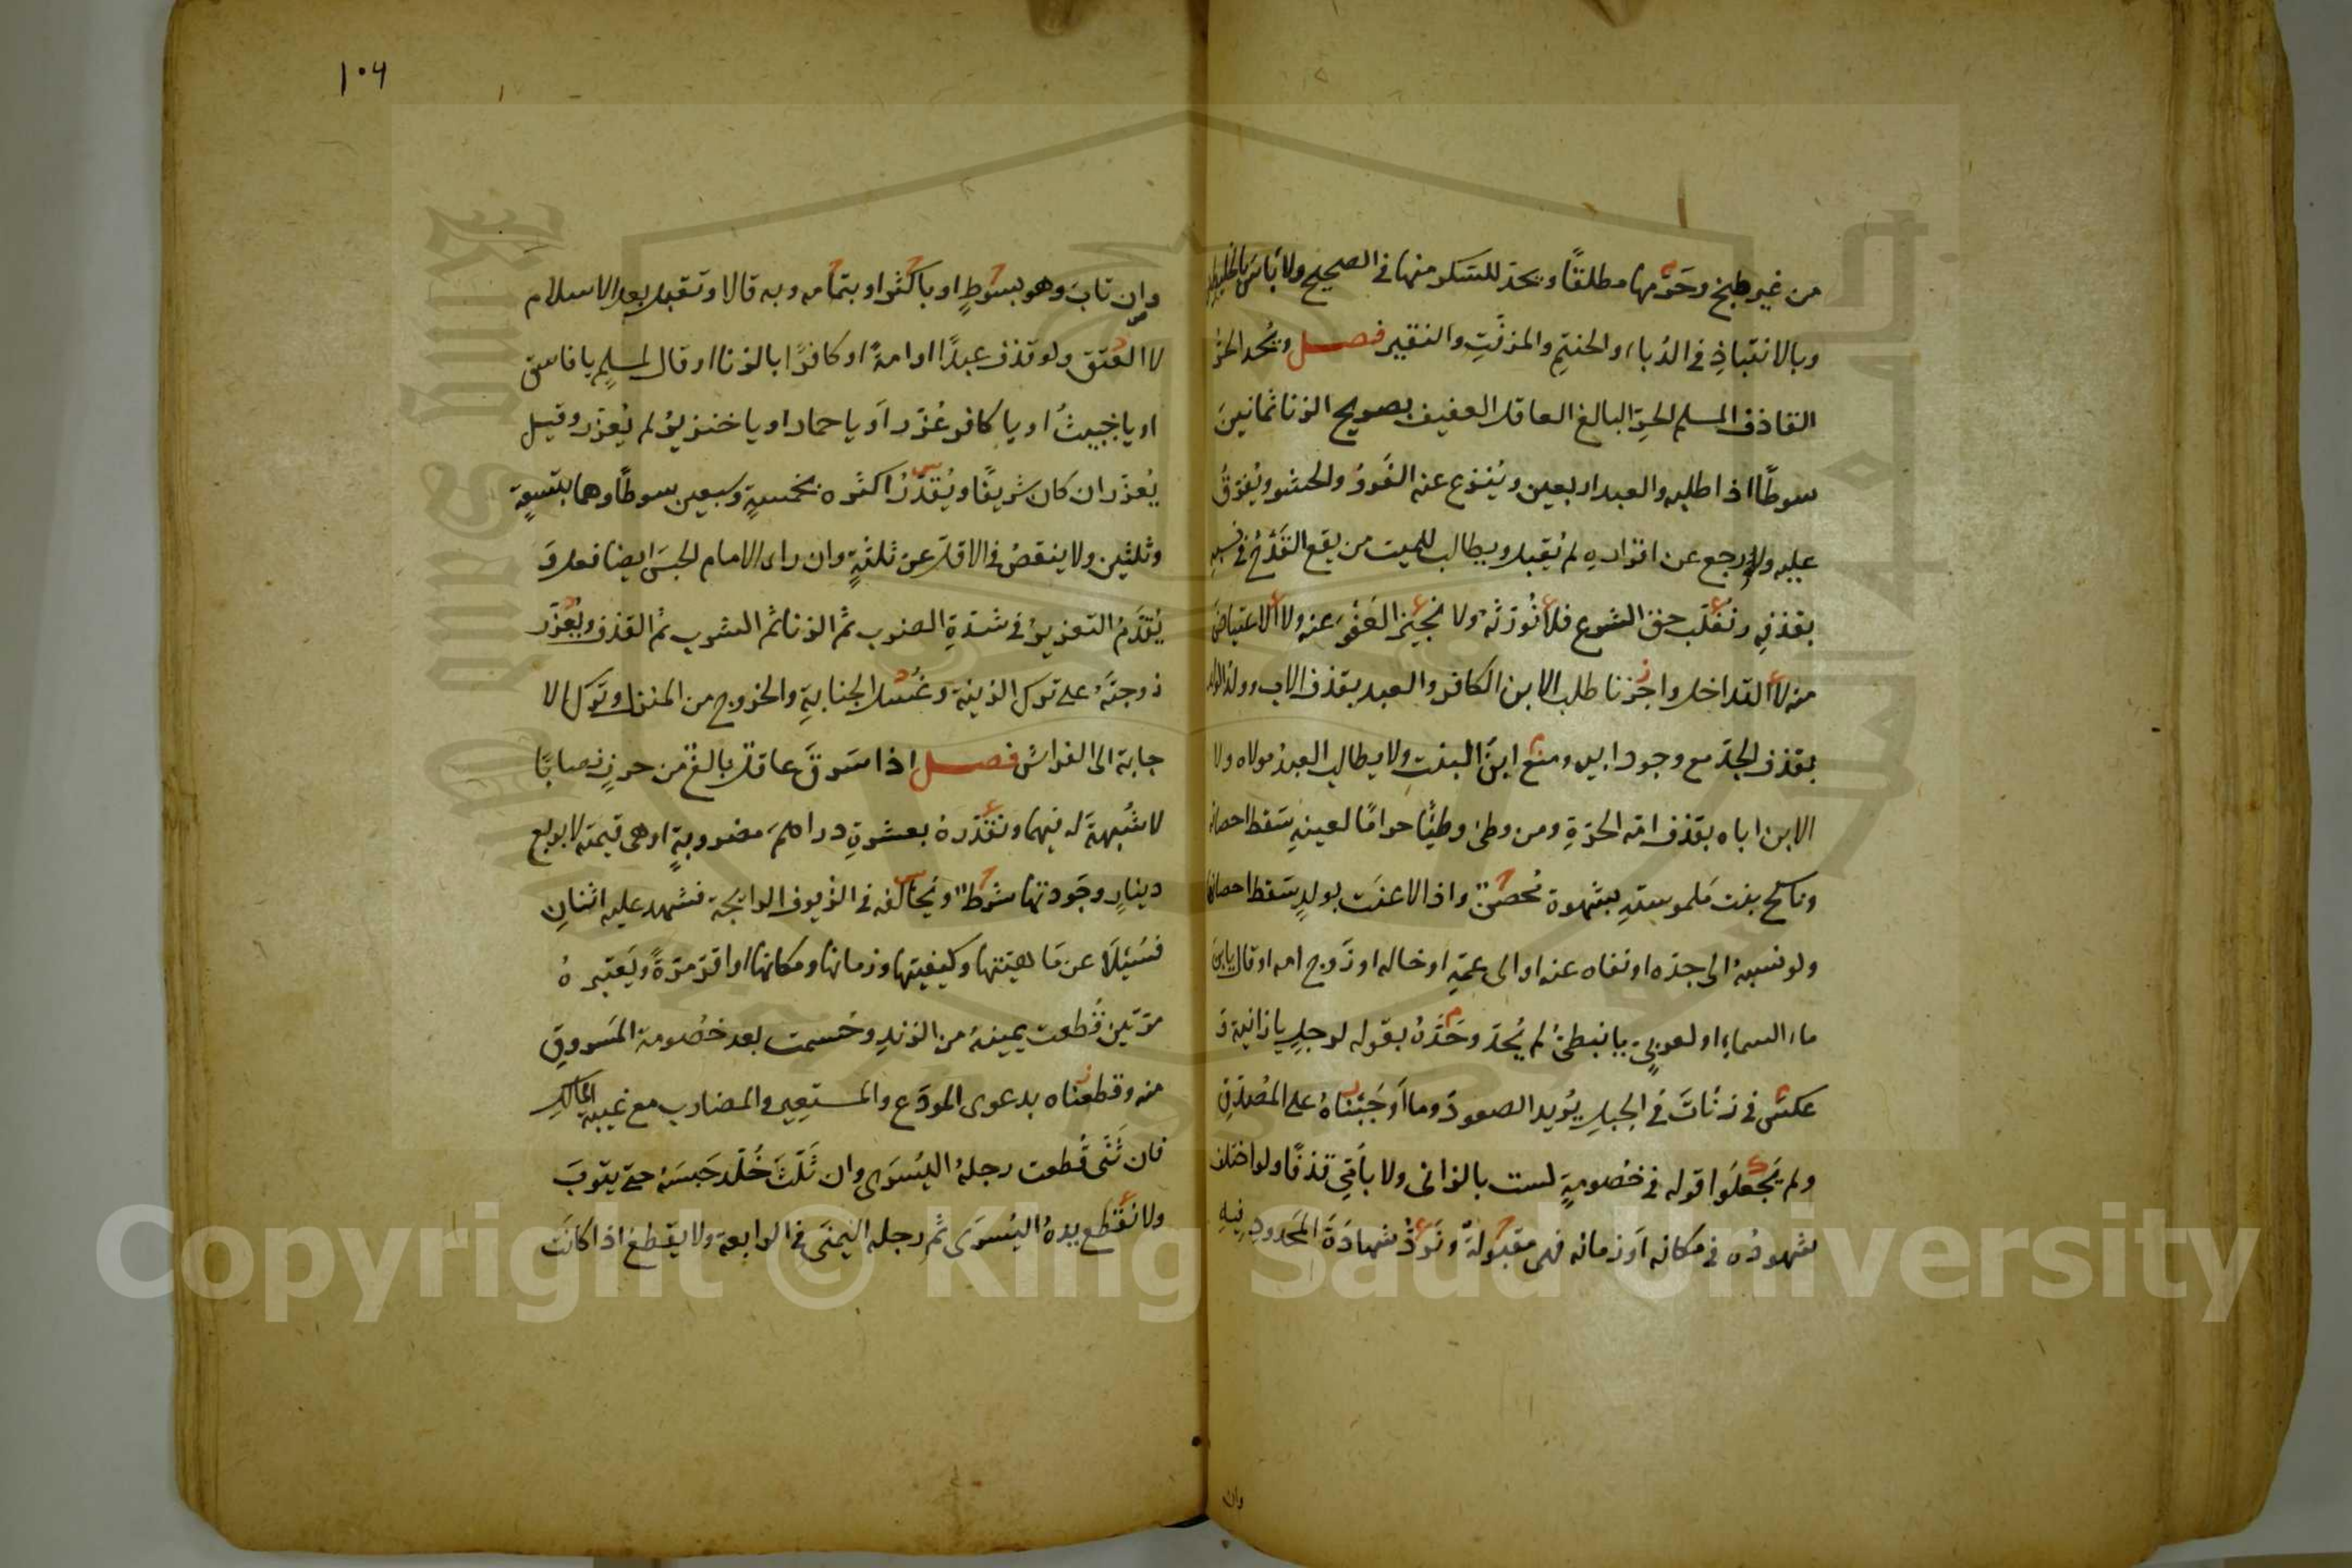 من غير طبخ وحرمها مطلقًا ويحد للسكر منها في الصحيح ولا بأس بالخليطين
وبالانتباذِ في الدُباء والحنتمِ والمزفّتِ والنقير فصل ويُحد الحرّ
القاذف المسلم الحرّ البالغ العاقل العفيف بصريح الزنا ثمانينَ
سوطًا اذا طلبه والعبد اربعين ويُنزع عنه الفَروُ والحشو ويُفرّقُ
عليه ولو رجع عن اقراره لم يُقبل ويطالب للميت من يقع القَدْحُ في نسبه
بقذفه ونغلّب حق الشرع فلا نُورّثه ولا نُجيز العَفْوَ عنه ولا الاعتياضَ
منه لا التداخل واجزنا طلب الابن الكافر والعبد بقذف الاب وولد الولد
بقذف الجدّ مع وجود ابيه ومنع ابنَ البنتِ ولا يطالب العبدُ مولاه ولا
الابن اباه بقذف امّه الحرّةِ ومن وطئ وطيًا حرامًا لعينهِ سَقط احصانه
وناكح بنت مَلموسته بشهوة مُحصنٌ واذا لاعنَت بولدٍ سَقط احصانها
ولو نسبهُ الى جدّه او نفاه عنه او الى عمّهِ او خاله او زَوج امه او قال يا ابن
ماء السماءِ او لعربيٍ يا نبطيُّ لم يُحدّ وحَدّهُ بقوله لرجلٍ يا زانية و
عكسَ في زنأتَ في الجبل يُريد الصعودَ وما اَوجَبناهُ على المُصَدّقِ
ولم يَجعلوا قوله في خصومةٍ لست بالزاني ولا بأبي قذفًا ولو اختلف
شهودُه في مكانه اَو زمانه فهى مقبولةٌ ونَردُّ شهادَةَ المَحدودِ فيهِ
وان
١٠٦
وان تابَ وهو بسَوطٍ او باكثر او بتمامه وبه قالا وتقبل بعد الاسلام
لا العتق ولو قذف عبدًا او امةً او كافرًا بالزنا او قال لمسلمٍ يا فاسق
او يا خبيثُ او يا كافر عُزّر اَو يا حمار او يا خنزيرُ لم يُعزّر وقيل
يُعزّر ان كان شريفًا ويُقدّرُ اكثره بخمسةٍ وسبعين سوطًا وهما بتسعةٍ
وثلثين ولا ينقصُ في الاقل عن ثلثةٍ وان راى الامام الحبسَ ايضا فعل و
يُقدّمُ التعزيرُ في شدّةِ الضرب ثم الزنا ثم الشرب ثم القذف ويُعزّر
زوجتَهُ على ترك الزينة وغُسل الجنابةِ والخروج من المنزل وتَرك الا
جابة الى الفراش فصل اذا سَرقَ عاقلٌ بالغٌ من حرزٍ نصابًا
لا شُبهةَ له فيها ونقدّرهُ بعشرةِ دراهمَ مضروبةٍ او هى قيمته لا بربع
دينارٍ وجَودتها شرطٌ ويُخالفه في الزُيوف الرائجة فشهد عليه اثنانِ
فسُئِلا عن مَاهيتها وكيفيتها وزمانها ومكانها او اقرّ مرّةً ويَعتبرهُ
مرّتين قُطعت يمينهُ من الزندِ وحُسمت بعد خصُومة المَسروقِ
منه وقطعناه بدعوى المودَع والمستعِير والمضارب مع غيبة المالكِ
فان ثَنَّى قُطعت رجلهُ اليُسرَى وان ثَلّثَ خُلّد حَبسَه حتى يتوبَ
ولا نقطع يدهُ اليُسرَى ثم رجله اليُمنَى في الرابعة ولا يقطعُ اذا كانَت